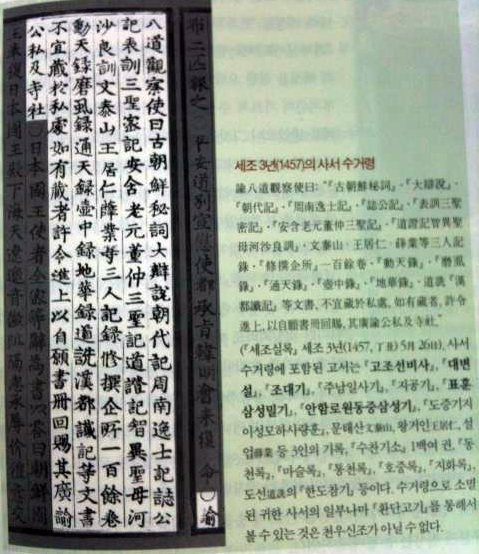 布二匹報之○平安道別宣慰使都承旨韓明澮來復命○諭
八道觀察使曰古朝鮮秘詞大辯說朝代記周南逸士記誌公
記表訓三聖密記安含老元董仲三聖記道證記智異聖母河
沙良訓文泰山王居仁薛業等三人記錄修撰企所一百餘卷
動天錄磨虱錄通天錄壺中錄地華錄道詵漢都讖記等文書
不宜藏於私處如有藏者許令進上以自願書冊回賜其廣諭
公私及寺社○日本國王使者全密等辭爲書以答曰朝鮮國
王奉復日本國王殿下海天遼邈音徽阻
세조 3년(1457)의 사서 수거령
諭八道觀察使曰:『古朝鮮秘詞』·『大辯說』·
『朝代記』·『周南逸士記』·『誌公記』·『表訓三聖
密記』·『安含老元董仲三聖記』·『道證記智異聖
母河沙良訓』, 文泰山·王居仁·薛業等三人記
錄,『修撰企所』一百餘卷,『動天錄』·『磨虱
錄』·『通天錄』·『壺中錄』·『地華錄』·道詵『漢
都讖記』等文書, 不宜藏於私處, 如有藏者, 許令
進上, 以自願書冊回賜, 其廣諭公私及寺社."
(『세조실록』, 세조 3년(1457, 丁丑) 5월 26日). 사서
수거령에 포함된 고서는 『고조선비사』, 『대변
설』, 『조대기』, 『주남일사기』, 『지공기』, 『표훈
삼성밀기』, 『안함로원동중삼성기』, 『도증기지
이성모하사량훈』, 문태산文泰山, 왕거인王居仁, 설
업薛業 등 3인의 기록, 『수찬기소』 1백여 권, 『동
천록』, 『마슬록』, 『통천록』, 『호중록』, 『지화록』,
도선道詵의 『한도참기』 등이다. 수거령으로 소멸
된 귀한 사서의 일부나마 『환단고기』를 통해서
볼 수 있는 것은 천우신조가 아닐 수 없다.